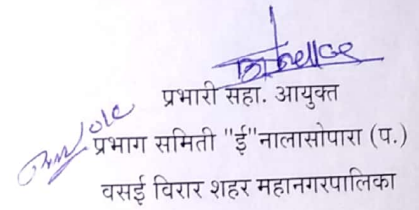 प्रभारी सहा. आयुक्त
प्रभाग समिती "ई"नालासोपारा (प.)
वसई विरार शहर महानगरपालिका